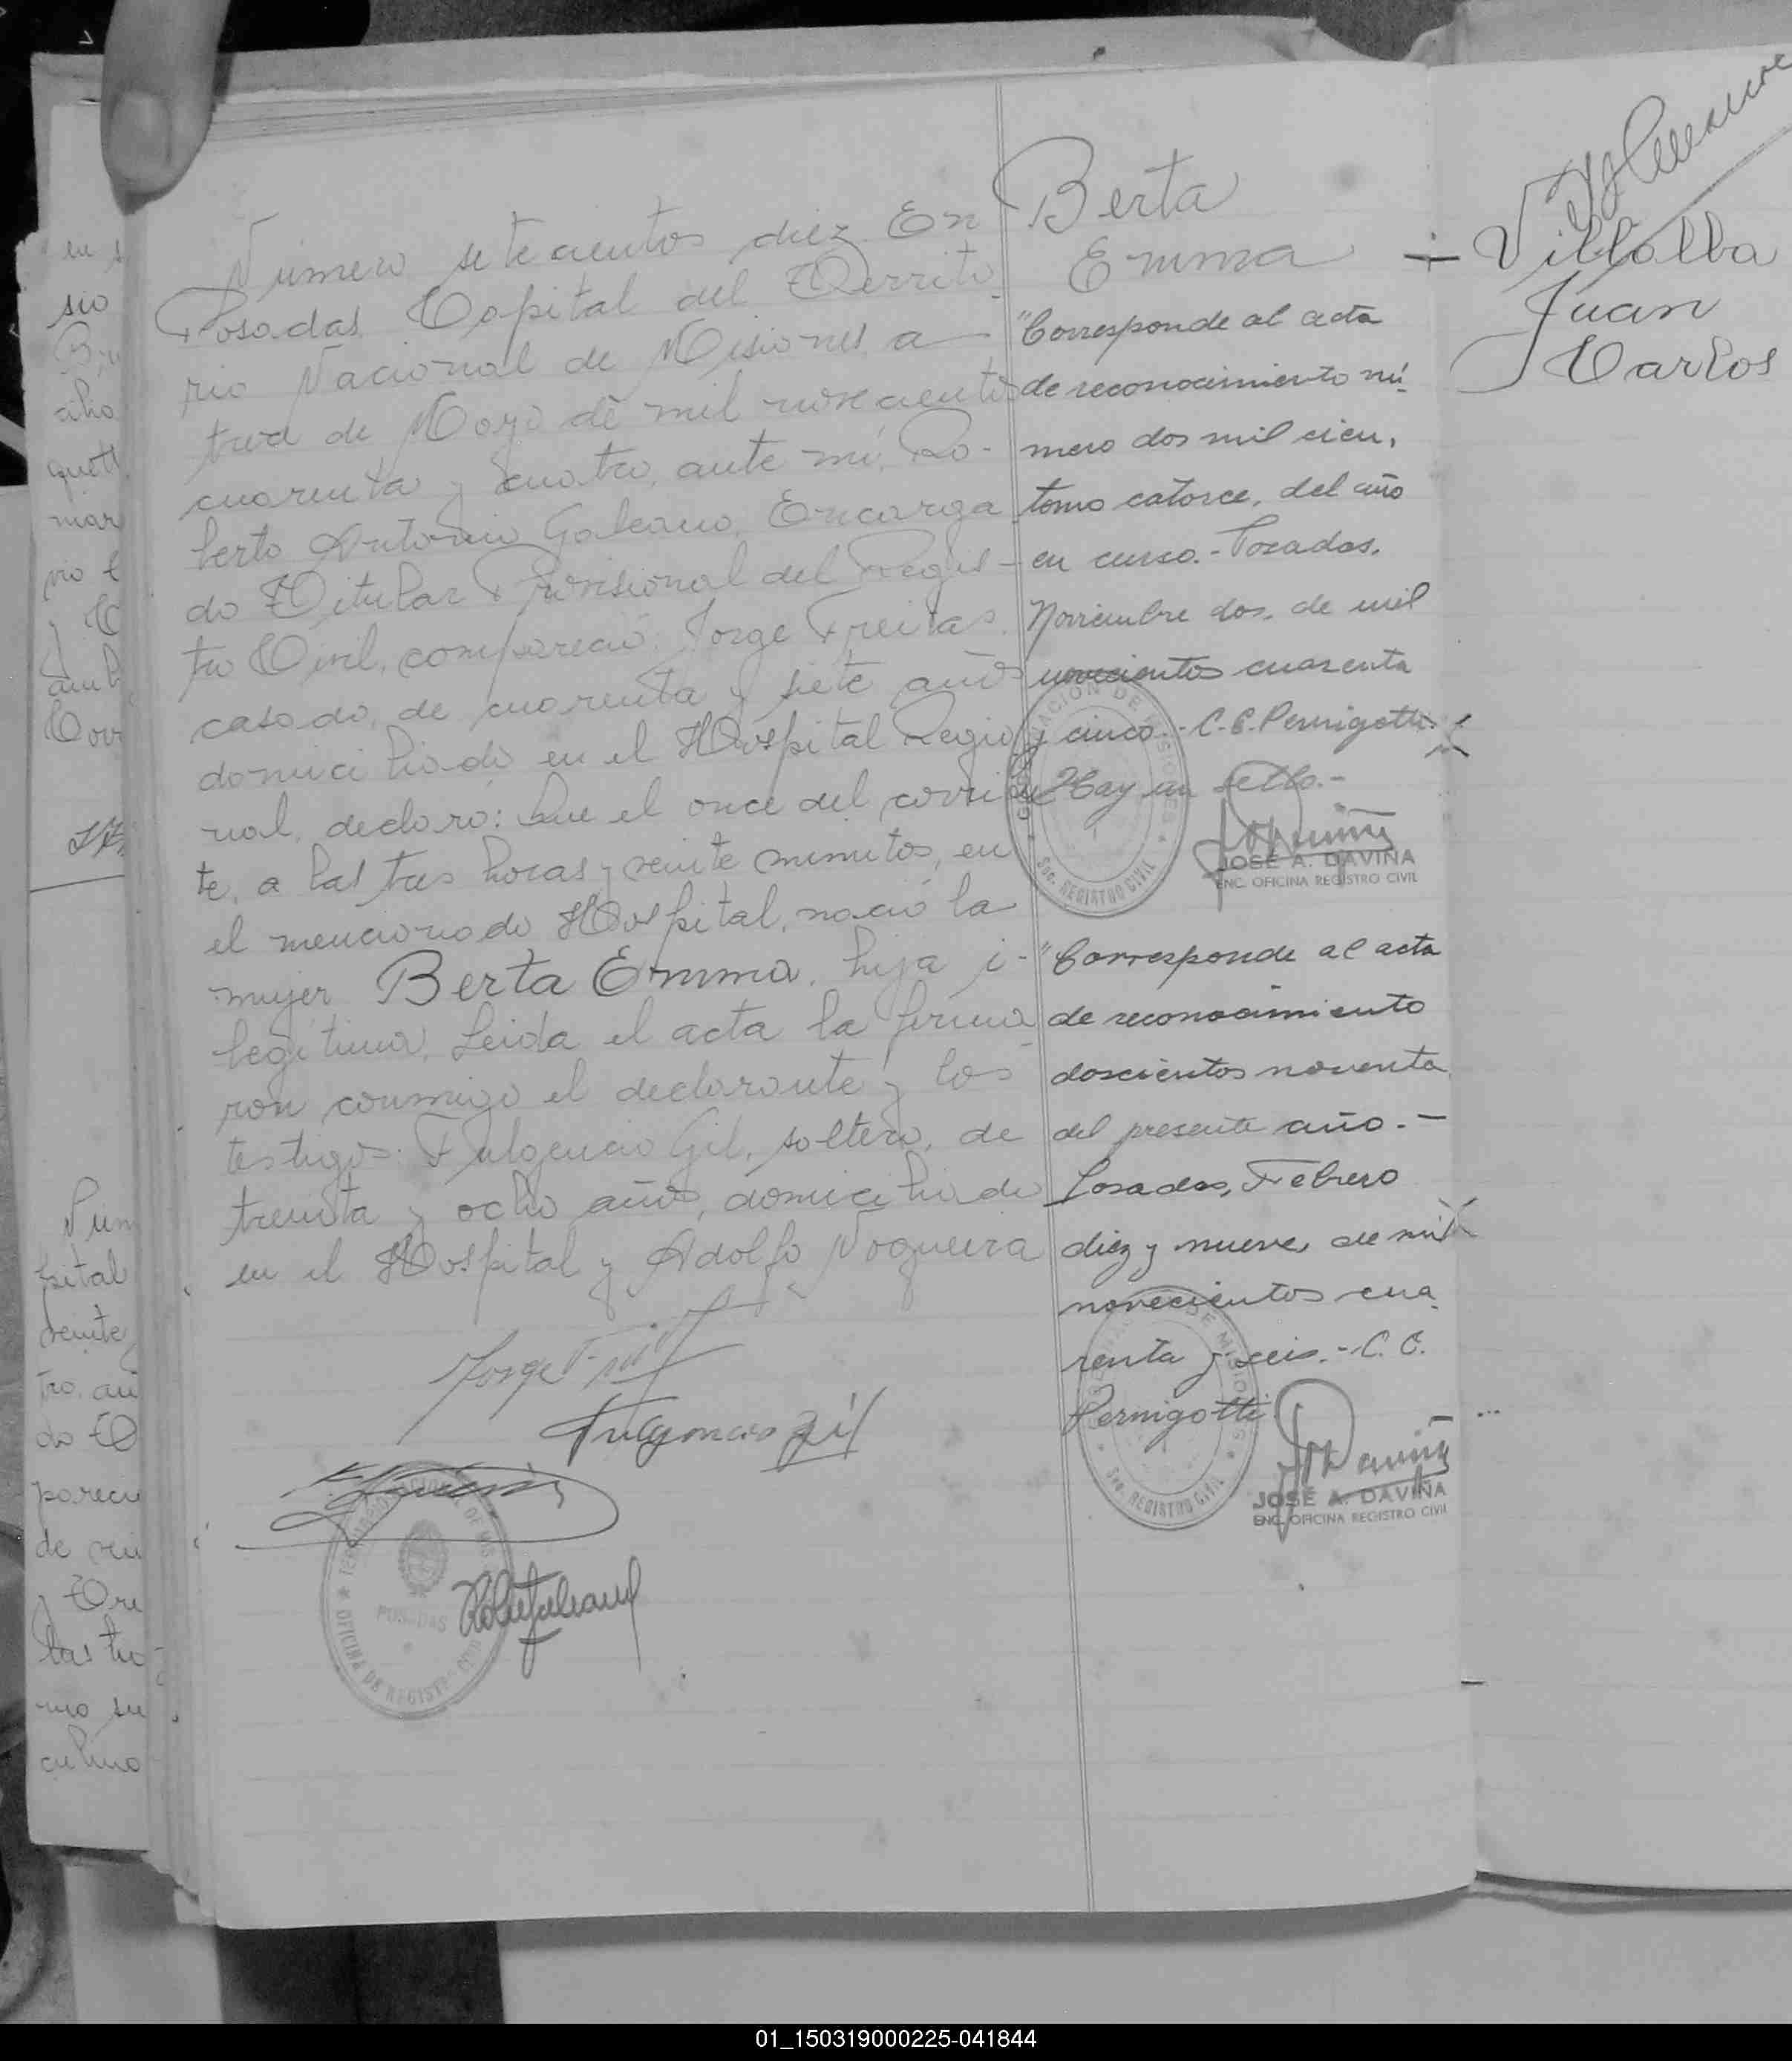 Número setecientos diez En
Posadas Capital del Territo-
rio Nacional de Misiones a
trece de Mayo de mil novecientos
cuarenta y cuatro, ante mí, Ro-
berto Antonio Galeano, Encarga
do Titular Provisional del Regis-
tro Civil, compareció: Jorge Freitas
casado, de cuarenta y siete años
domiciliado en el Hospital Regio
nal, declaró: Que el once del corrien
te, a las tres horas y veinte minutos, en
el mencionado Hospital, nació la
mujer Berta Emma, hija i-
legítima. Leida el acta la firma-
ron conmigo el declarante y los
testigos: Fulgencio Gil, soltero, de
treinta y ocho años, domiciliado
en el Hospital y Adolfo Nogueira
Fulgencio Gil
TERRITORIO NACIONAL DE MIS
POSADAS
OFICINA DE REGISTRO CIVIL
Berta
Emma
"Corresponde al acta
de reconocimiento nú-
mero dos mil cien,
tomo catorce, del año
en curso.- Posadas,
Noviembre dos, de mil
novecientos cuarenta
y cinco.- C.C. Pernigotti.
Hay un sello.-
GOBERNACION DE MISIONES
Sec. REGISTRO CIVIL
JOSÉ A. DAVIÑA
ENC. OFICINA REGISTRO CIVIL
"Corresponde al acta
de reconocimiento
doscientos noventa
del presente año.-
Posadas, Febrero
diez y nueve, de mil
novecientos cua
renta y seis.- C. C.
Pernigotti
GOBERNACION DE MISIONES
Sec. REGISTRO CIVIL
JOSÉ A. DAVIÑA
ENC. OFICINA REGISTRO CIVIL
Villalba
Juan
Carlos
01_150319000225-041844